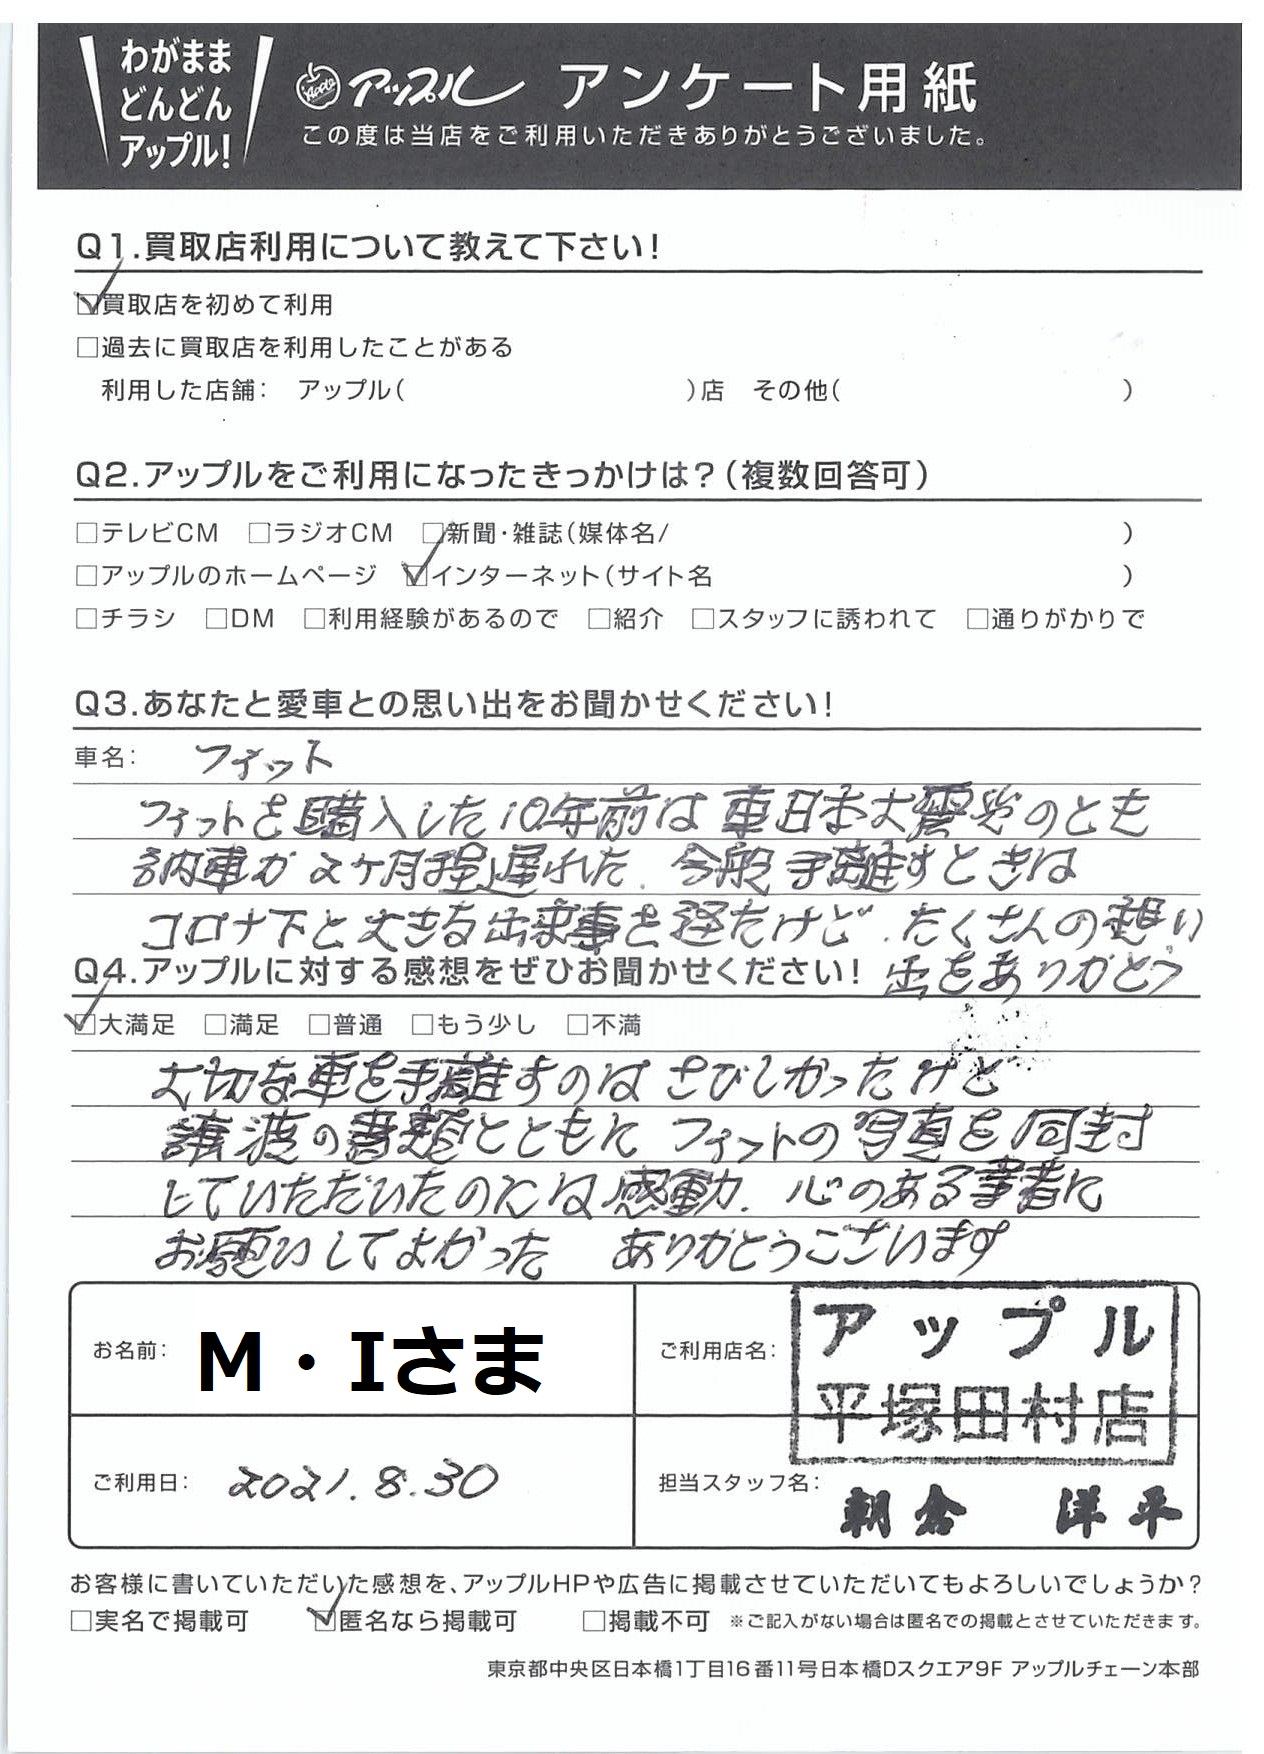 わがまま
どんどん
アップル!
Apple アップル アンケート用紙
この度は当店をご利用いただきありがとうございました。
Q1.買取店利用について教えて下さい!
☑買取店を初めて利用
□過去に買取店を利用したことがある
利用した店舗: アップル( )店 その他( )
Q2.アップルをご利用になったきっかけは?(複数回答可)
□テレビCM □ラジオCM □新聞・雑誌(媒体名/ )
□アップルのホームページ ☑インターネット(サイト名 )
□チラシ □DM □利用経験があるので □紹介 □スタッフに誘われて □通りがかりで
Q3.あなたと愛車との思い出をお聞かせください!
車名: フィット
フィットを購入した10年前は東日本大震災のとき
納車が2ヶ月程遅れた. 今般手離すときは
コロナ下と大きな出来事を経たけど. たくさんの想い
出をありがとう
Q4.アップルに対する感想をぜひお聞かせください!
☑大満足 □満足 □普通 □もう少し □不満
大切な車を手離すのはさびしかったけど
譲渡の書類とともに フィットの写真を同封
していただいたのには感動. 心のある業者に
お願いしてよかった ありがとうございます
お名前: M・Iさま
ご利用店名: アップル
平塚田村店
ご利用日: 2021.8.30
担当スタッフ名: 朝倉 洋平
お客様に書いていただいた感想を、アップルHPや広告に掲載させていただいてもよろしいでしょうか?
□実名で掲載可 ☑匿名なら掲載可 □掲載不可 ※ご記入がない場合は匿名での掲載とさせていただきます。
東京都中央区日本橋1丁目16番11号日本橋Dスクエア9F アップルチェーン本部